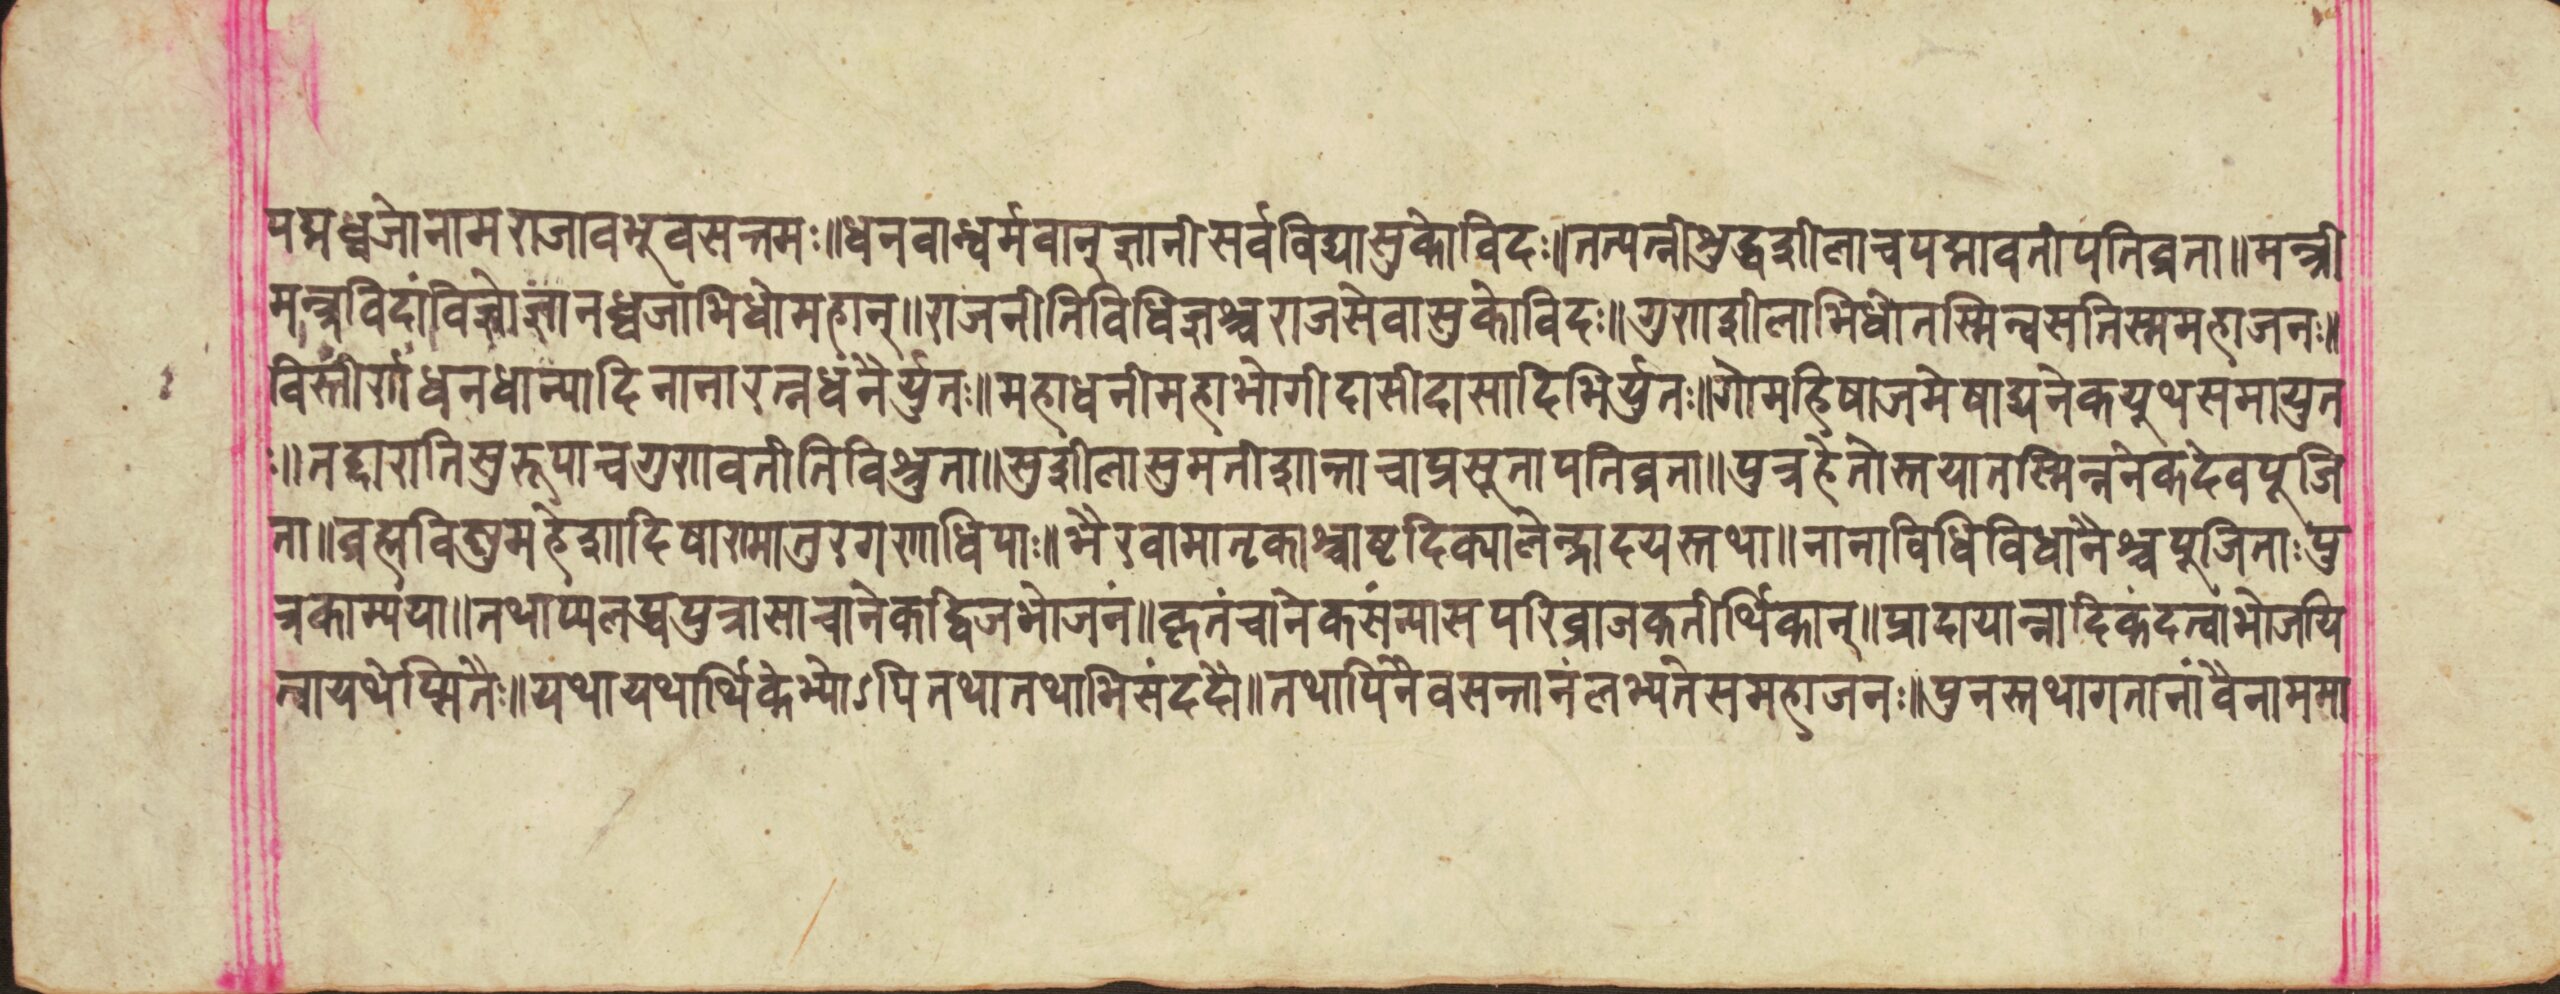 पद्मध्वजोनामराजावभूवसत्तमः॥धनवान्धर्मवान्ज्ञानीसर्वविद्यासुकोविदः॥तत्पत्नीशुद्धशीलाचपद्मावतीपतिव्रता॥मन्त्री
मन्त्रविदांविज्ञोज्ञानध्वजाभिधोमहान्॥राजनीतिविधिज्ञश्चराजसेवासुकोविदः॥गुणशीलाभिधोतस्मिन्वसतिस्ममहाजनः॥
विस्तीर्णधनधान्यादिनानारत्नधनैर्युतः॥महाधनीमहाभोगीदासीदासादिभिर्युतः॥गोमहिषाजमेषाद्यनेकयूथसमायुत
ः॥तद्दारातिसुरूपाचगुणवतीतिविश्रुता॥सुशीलासुमतीशान्ताचाप्रसूतापतिव्रता॥पुत्रहेतोस्तयातस्मिन्ननेकदेवपूजि
ता॥ब्रह्मविष्णुमहेशादिषाण्मातुरगणाधिपाः॥भैरवामातृकाश्चाष्टदिक्पालेन्द्रादयस्तथा॥नानाविधिविधानैश्चपूजिताःपु
त्रकाम्यया॥तथाप्यलब्धपुत्रासाचानेकद्विजभोजनं॥कृतंचानेकसंन्यासपरिव्राजकतीर्थिकान्॥प्रादायान्नादिकंदत्वाभोजयि
त्वायथेप्सितैः॥यथायथार्थिकेभ्योऽपितथातथाभिसंददौ॥तथापिनैवसन्तानंलभ्यतेसमहाजनः॥पुनस्तथागतानांवैनाममा